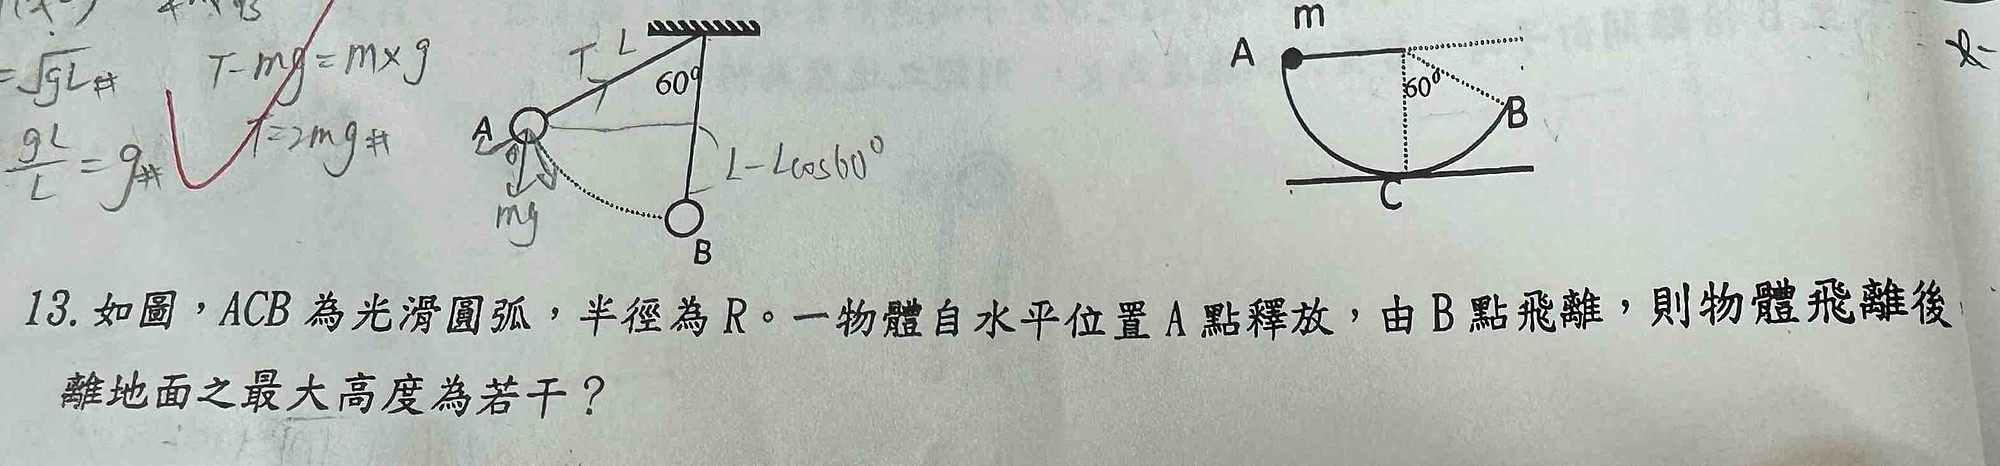 = √gL #
T-mg=m×g
gL/L = g #
T=2mg #
T
L
60°
A
mg
L-Lcos60°
B
m
A
60°
B
C
13. 如圖，ACB 為光滑圓弧，半徑為 R。一物體自水平位置 A 點釋放，由 B 點飛離，則物體飛離後
離地面之最大高度為若干？